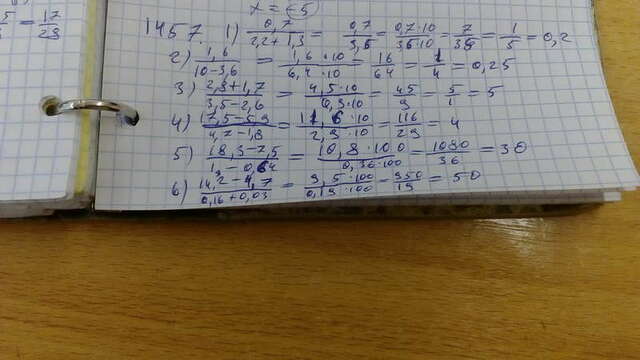 x = -5
= 17/23
1457. 1) 0,7/2,2+1,3 = 0,7/3,5 = 0,7·10/3,5·10 = 7/35 = 1/5 = 0,2
2) 1,6/10-3,6 = 1,6·10/6,4·10 = 16/64 = 1/4 = 0,25
3) 2,8+1,7/3,5-2,6 = 4,5·10/0,9·10 = 45/9 = 5/1 = 5
4) 17,5-5,9/4,7-1,8 = 11,6·10/2,9·10 = 116/29 = 4
5) 18,3-7,5/1-0,64 = 10,8·100/0,36·100 = 1080/36 = 30
6) 14,2-4,7/0,16+0,03 = 9,5·100/0,19·100 = 950/19 = 50